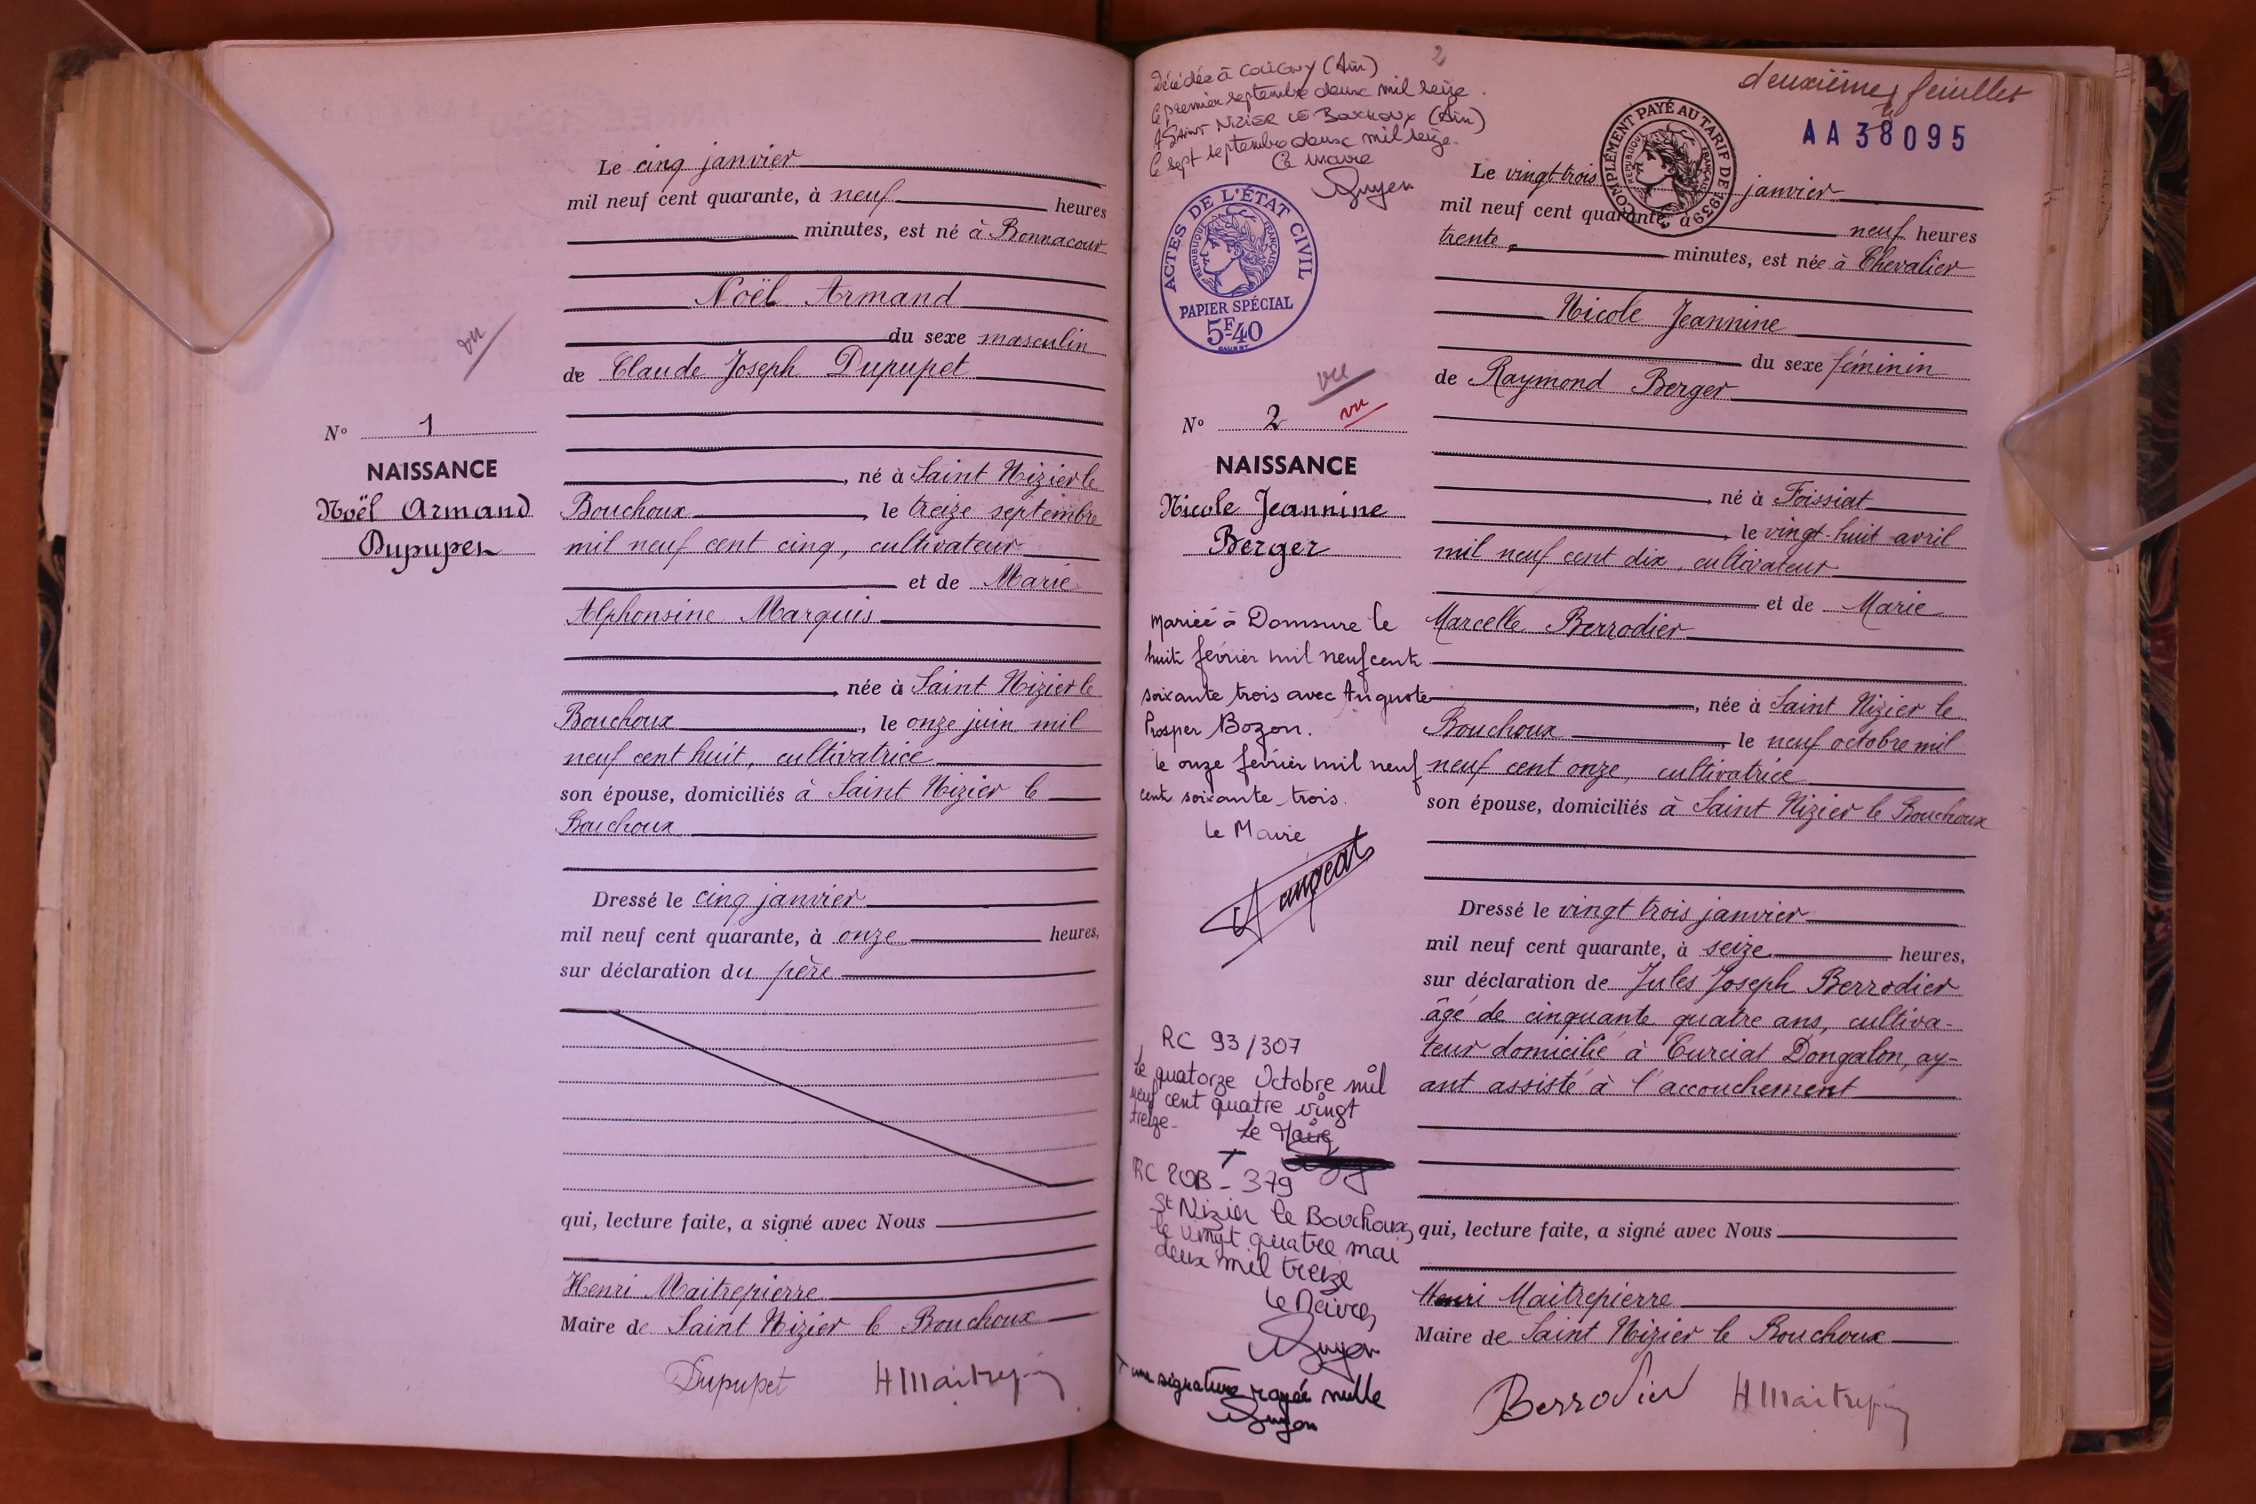 vu
N° 1
NAISSANCE
Noël Armand
Dupupet
Le cinq janvier
mil neuf cent quarante, à neuf heures
minutes, est né à Bonnacour
Noël Armand
du sexe masculin
de Claude Joseph Dupupet
, né à Saint Nizier le
Bouchoux, le treize septembre
mil neuf cent cinq, cultivateur
et de Marie
Alphonsine Marquis
, née à Saint Nizier le
Bouchoux, le onze juin mil
neuf cent huit, cultivatrice
son épouse, domiciliés à Saint Nizier le
Bouchoux
Dressé le cinq janvier
mil neuf cent quarante, à onze heures,
sur déclaration du père
qui, lecture faite, a signé avec Nous
Henri Maitrepierre
Maire de Saint Nizier le Bouchoux
Dupupet HMaitrepierre
2
Décédée à COLIGNY (Ain)
le premier septembre deux mil seize.
A SAINT NIZIER LE BOUCHOUX (Ain)
le sept septembre deux mil seize.
Le maire
ACTES DE L'ÉTAT CIVIL
RÉPUBLIQUE FRANÇAISE
PAPIER SPÉCIAL
5F40
vu
vu
N° 2
NAISSANCE
Nicole Jeannine
Berger
Mariée à Domsure le
huit février mil neuf cent
soixante trois avec Auguste
Prosper Bozon.
le onze février mil neuf
cent soixante trois.
le Maire
RC 93/307
Le quatorze Octobre mil
neuf cent quatre vingt
treize-
Le Maire
RC 20B - 379
St Nizier le Bouchoux,
le vingt quatre mai
deux mil treize
Le Maire,
+ une signature rayée nulle
deuxième feuillet
COMPLÉMENT PAYÉ AU TARIF DE 1939
RÉPUBLIQUE FRANÇAISE
AA 38095
Le vingt-trois janvier
mil neuf cent quarante, à neuf heures
trente minutes, est née à Chevalier
Nicole Jeannine
du sexe féminin
de Raymond Berger
, né à Foissiat
, le vingt-huit avril
mil neuf cent dix, cultivateur
et de Marie
Marcelle Berrodier
, née à Saint Nizier le
Bouchoux, le neuf octobre mil
neuf cent onze, cultivatrice
son épouse, domiciliés à Saint Nizier le Bouchoux
Dressé le vingt trois janvier
mil neuf cent quarante, à seize heures,
sur déclaration de Jules Joseph Berrodier
âgé de cinquante quatre ans, cultiva-
teur domicilié à Curciat Dongalon, ay-
ant assisté à l'accouchement
qui, lecture faite, a signé avec Nous
Henri Maitrepierre
Maire de Saint Nizier le Bouchoux
Berrodier HMaitrepierre